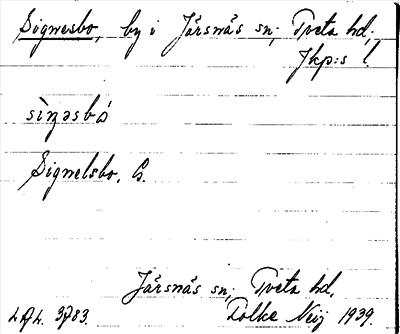 Signesbo, by i Järsnäs sn; Tveta hd;
Jkp:s l.
sìŋəsbó
Signelsbo, G.
Järsnäs sn; Tveta hd.
LAL. 3783. Folke Nyj 1939.